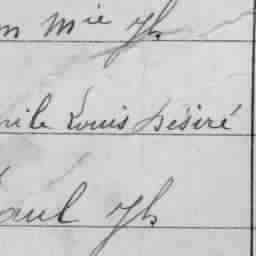 n Mie Jh
ile Louis Désiré
Paul Jh